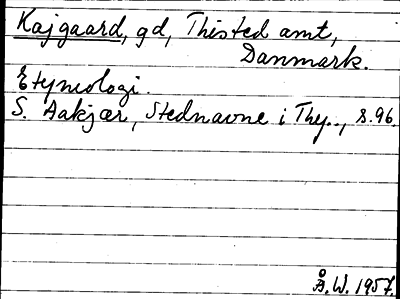 Kajgaard, gd, Thisted amt,
Danmark.
Etymologi.
S. Aakjær, Stednavne i Thy.., s. 96.
Å. W. 1957.